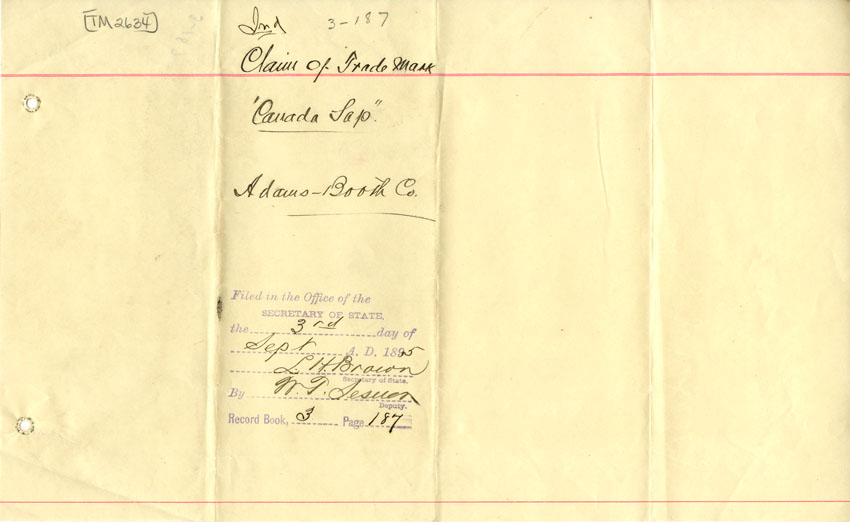 [TM2634]
Ind 3-187
Claim of Trade Mark
"Canada Sap".
Adams-Booth Co.
Filed in the Office of the
SECRETARY OF STATE,
the 3rd day of
Sept A. D. 1895
L. H. Brown
Secretary of State.
By W. T. Sesnon
Deputy.
Record Book, 3 Page 187